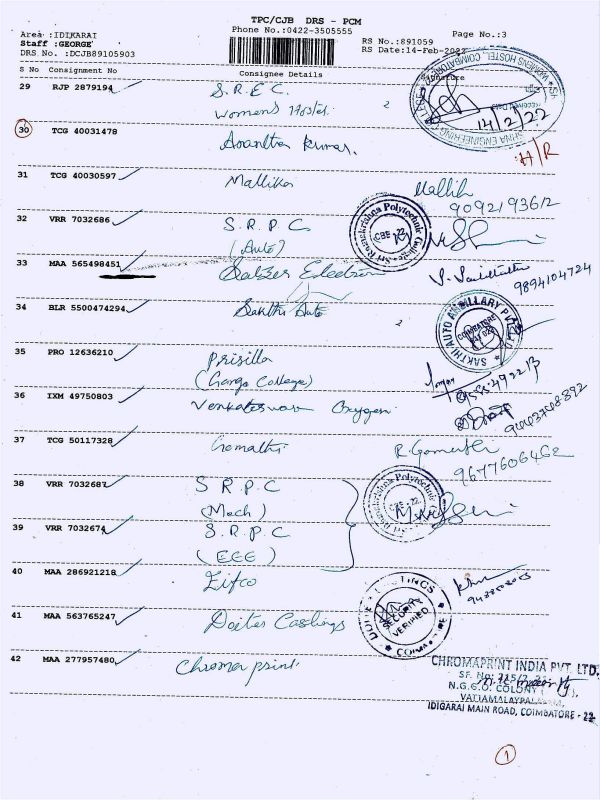 TPC/CJB DRS - PCM
Area :IDIKARAI
Phone No.:0422-3505555
Page No.:3
Staff :GEORGE
RS No.:891059
DRS No. :DCJB89105903
RS Date:14-Feb-2022
S No Consignment No
Consignee Details
Signature
29 RJP 2879194
S.R.E.C.
Womens Hostel
2
14/2/22
30 TCG 40031478
Anantha Kumar.
H/R
31 TCG 40030597
Mallika
9092193612
32 VRR 7032686
S.R.P.C
(Auto)
Sri Ramakrishna Polytechnic College
CBE - 22
33 MAA 565498451
9894104724
34 BLR 5500474294
Sakthi Auto
2
SAKTHI AUTO ANCILLARY PVT LTD
COIMBATORE
35 PRO 12636210
Prisilla
(Ganga College)
36 IXM 49750803
Venkateswara Oxygen
37 TCG 50117328
Gomathi
R. Gomathi
9677606462
38 VRR 7032687
S R.P.C
(Mech)
Sri Ramakrishna Polytechnic
CBE - 22
39 VRR 7032674
S.R.P.C
(EEE)
40 MAA 286921218
Eifco
41 MAA 563765247
Doiter Castings
SECURITY
VERIFIED
42 MAA 277957480
Chroma print
CHROMAPRINT INDIA PVT. LTD.
N.G.G.O. COLONY
VATTAMALAYPALAYAM,
IDIGARAI MAIN ROAD, COIMBATORE - 22
1